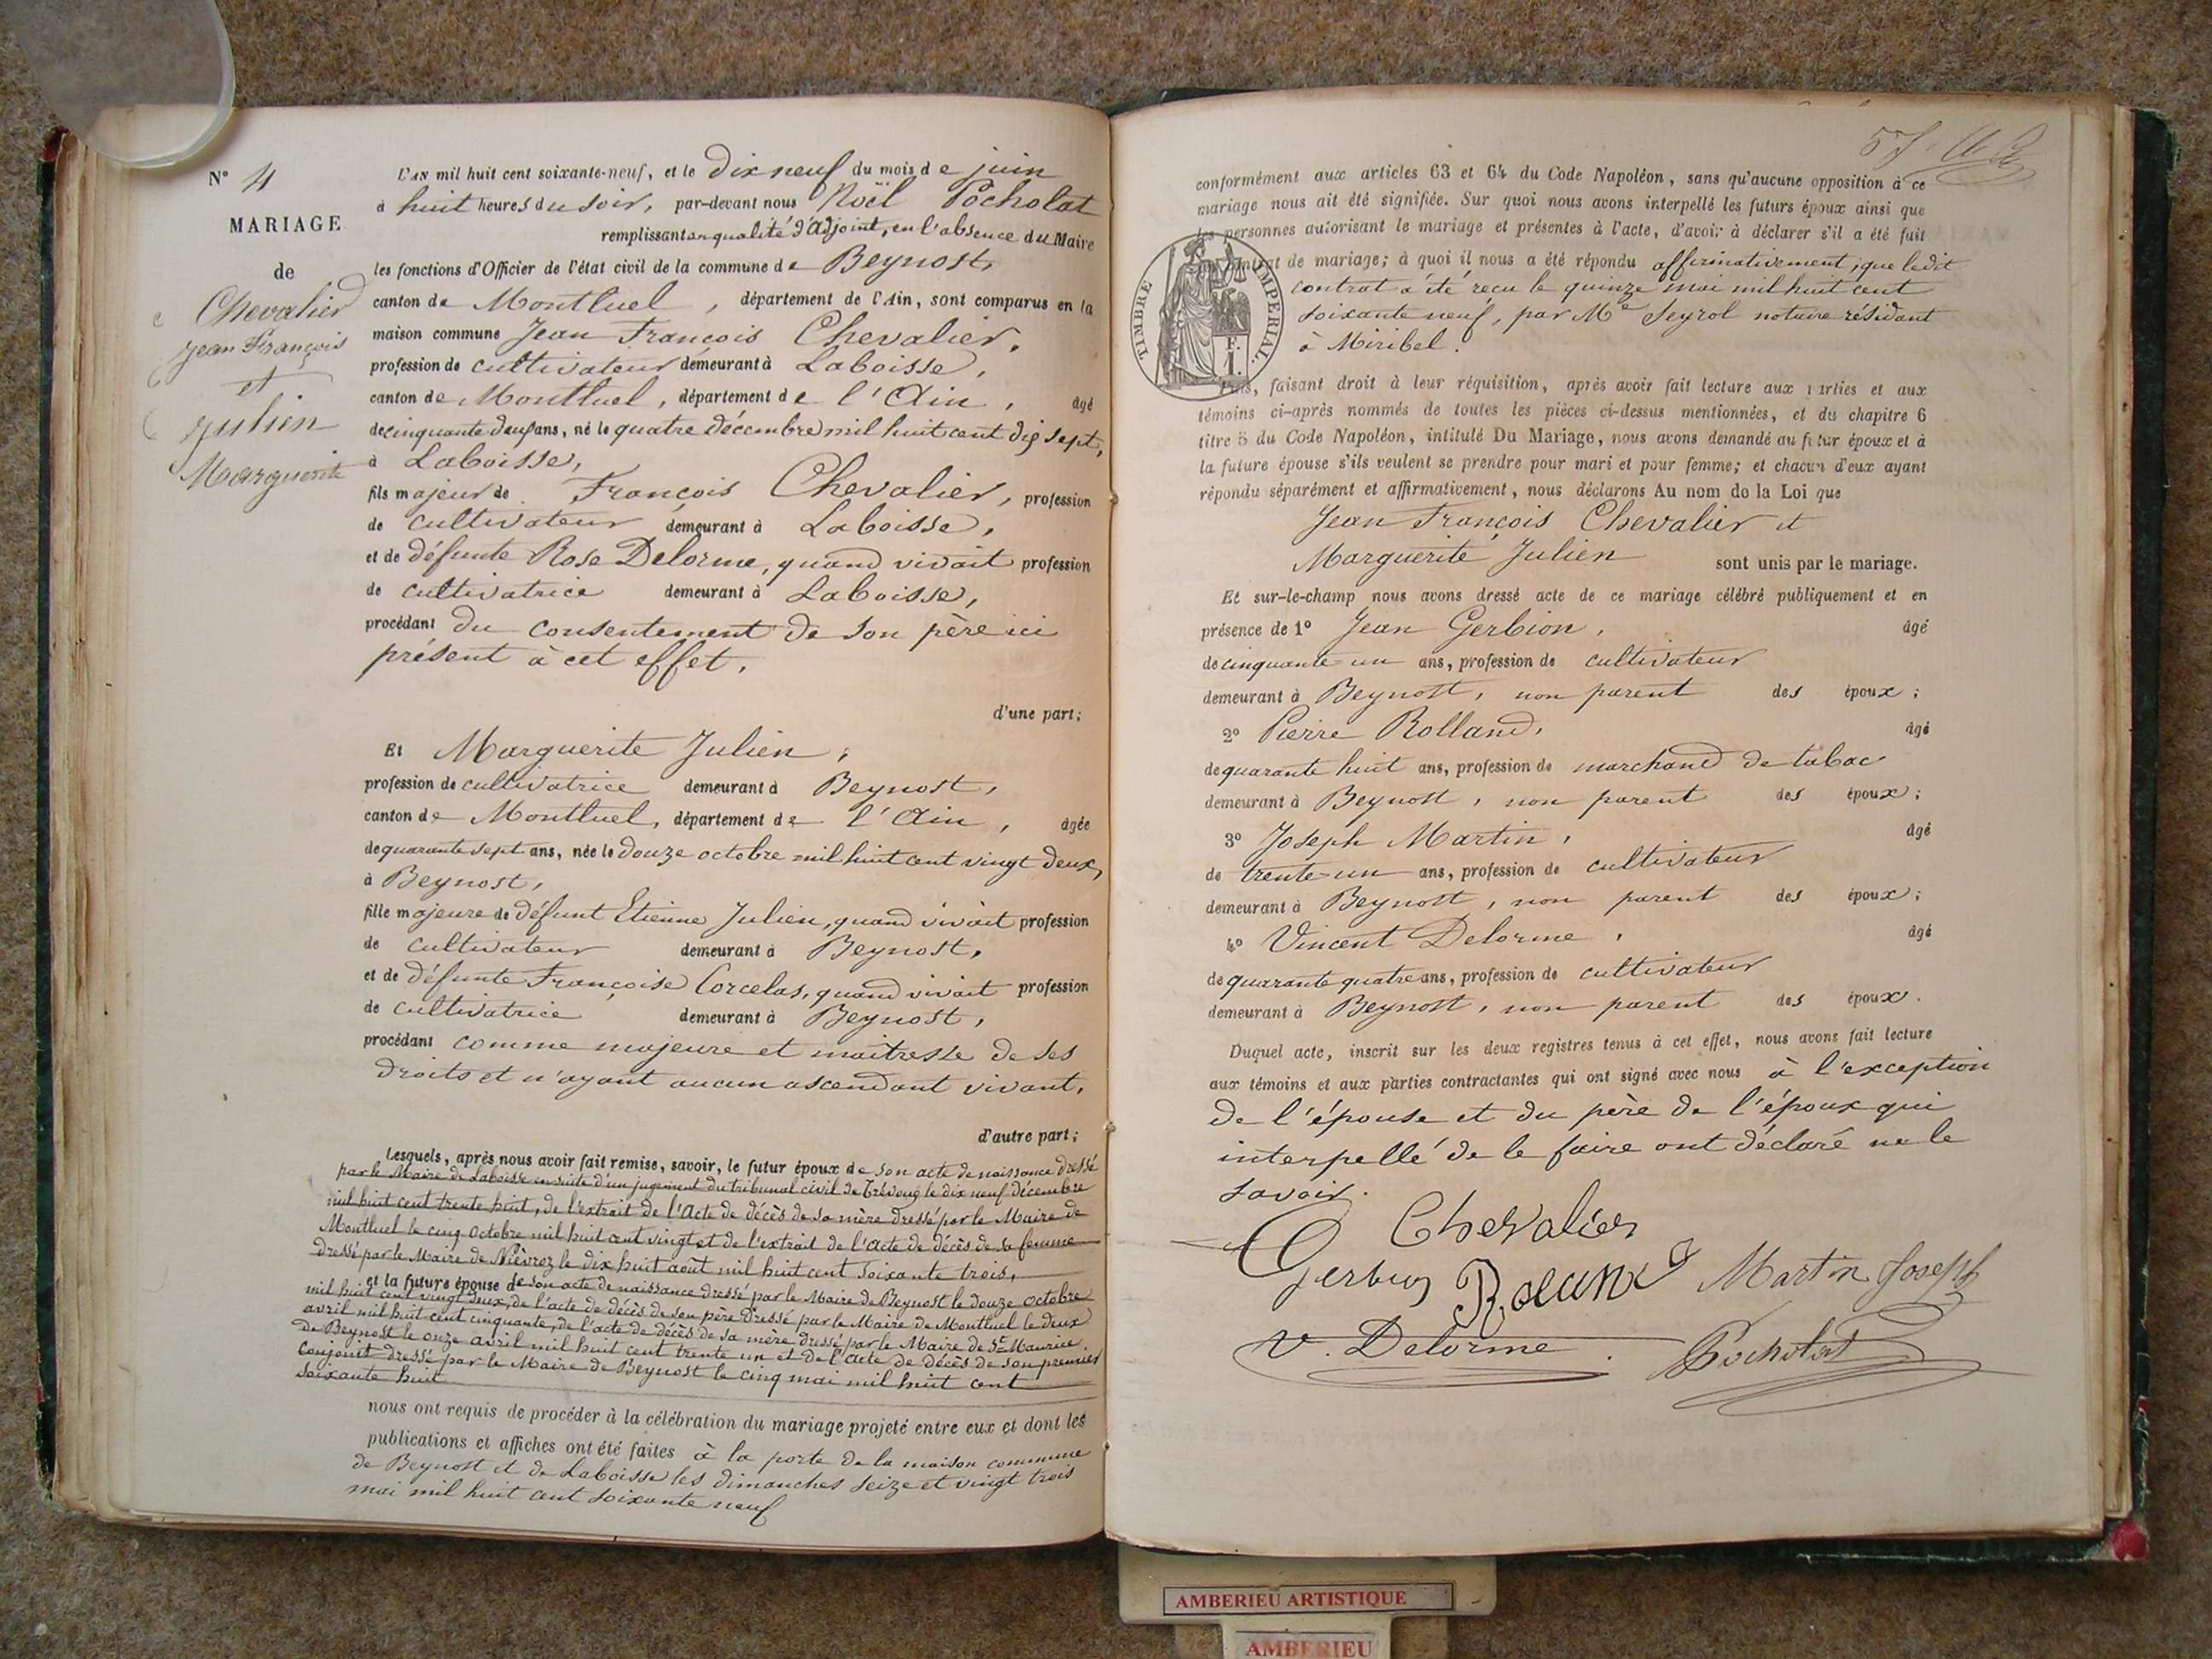 N° 4
MARIAGE
de
Chevalier
Jean François
et
Julien
Marguerite
L'AN mil huit cent soixante-neuf, et le Dix neuf du mois de juin
à huit heures du soir, par-devant nous Noël Pocholat
remplissant en qualité d'Adjoint, en l'absence du Maire
les fonctions d'Officier de l'état civil de la commune de Beynost,
canton de Montluel, département de l'Ain, sont comparus en la
maison commune Jean François Chevalier,
profession de cultivateur demeurant à Laboisse,
canton de Montluel, département de l'Ain, âgé
de cinquante deux ans, né le quatre décembre mil huit cent dix sept,
à Laboisse,
fils majeur de François Chevalier, profession
de cultivateur demeurant à Laboisse,
et de défunte Rose Delorme, quand vivait profession
de cultivatrice demeurant à Laboisse,
procédant du consentement de son père ici
présent à cet effet,
d'une part;
Et Marguerite Julien,
profession de cultivatrice demeurant à Beynost,
canton de Montluel, département de l'Ain, âgée
de quarante sept ans, née le douze octobre mil huit cent vingt deux,
à Beynost,
fille majeure de défunt Etienne Julien, quand vivait profession
de cultivateur demeurant à Beynost,
et de défunte Françoise Corcelas, quand vivait profession
de cultivatrice demeurant à Beynost,
procédant comme majeure et maîtresse de ses
droits et n'ayant aucun ascendant vivant,
d'autre part;
Lesquels, après nous avoir fait remise, savoir, le futur époux de son acte de naissance dressé
par le Maire de Laboisse ensuite d'un jugement du tribunal civil de Trévoux le dix neuf décembre
mil huit cent trente huit, de l'extrait de l'Acte de décès de sa mère dressé par le Maire de
Montluel le cinq Octobre mil huit cent vingt et de l'extrait de l'Acte de décès de sa femme
dressé par le Maire de Nièvroz le dix huit août mil huit cent soixante trois,
et la future épouse de son acte de naissance dressé par le Maire de Beynost le douze octobre
mil huit cent vingt deux, de l'acte de décès de son père dressé par le Maire de Montluel le deux
avril mil huit cent cinquante, de l'acte de décès de sa mère dressé par le Maire de St Maurice
de Beynost le onze avril mil huit cent trente un et de l'acte de décès de son premier
conjoint dressé par le Maire de Beynost le cinq mai mil huit cent
soixante huit
nous ont requis de procéder à la célébration du mariage projeté entre eux et dont les
publications et affiches ont été faites à la porte de la maison commune
de Beynost et de Laboisse les dimanches seize et vingt trois
mai mil huit cent soixante neuf
57
conformément aux articles 63 et 64 du Code Napoléon, sans qu'aucune opposition à ce
mariage nous ait été signifiée. Sur quoi nous avons interpellé les futurs époux ainsi que
les personnes autorisant le mariage et présentes à l'acte, d'avoir à déclarer s'il a été fait
contrat de mariage; à quoi il nous a été répondu affirmativement, que ledit
contrat a été reçu le quinze mai mil huit cent
soixante neuf, par Me Seyrol notaire résidant
à Miribel.
TIMBRE IMPERIAL.
Puis, faisant droit à leur réquisition, après avoir fait lecture aux parties et aux
témoins ci-après nommés de toutes les pièces ci-dessus mentionnées, et du chapitre 6
titre 5 du Code Napoléon, intitulé Du Mariage, nous avons demandé au futur époux et à
la future épouse s'ils veulent se prendre pour mari et pour femme; et chacun d'eux ayant
répondu séparément et affirmativement, nous déclarons Au nom de la Loi que
Jean François Chevalier et
Marguerite Julien sont unis par le mariage.
Et sur-le-champ nous avons dressé acte de ce mariage célébré publiquement et en
présence de 1° Jean Gerbion, âgé
de cinquante un ans, profession de cultivateur
demeurant à Beynost, non parent des époux;
2° Pierre Rolland, âgé
de quarante huit ans, profession de marchand de tabac
demeurant à Beynost, non parent des époux;
3° Joseph Martin, âgé
de trente-un ans, profession de cultivateur
demeurant à Beynost, non parent des époux;
4° Vincent Delorme, âgé
de quarante quatre ans, profession de cultivateur
demeurant à Beynost, non parent des époux.
Duquel acte, inscrit sur les deux registres tenus à cet effet, nous avons fait lecture
aux témoins et aux parties contractantes qui ont signé avec nous à l'exception
de l'épouse et du père de l'époux qui
interpellé de le faire ont déclaré ne le
savoir.
Chevalier
Martin Joseph
V. Delorme Pocholat
AMBERIEU ARTISTIQUE
AMBERIEU